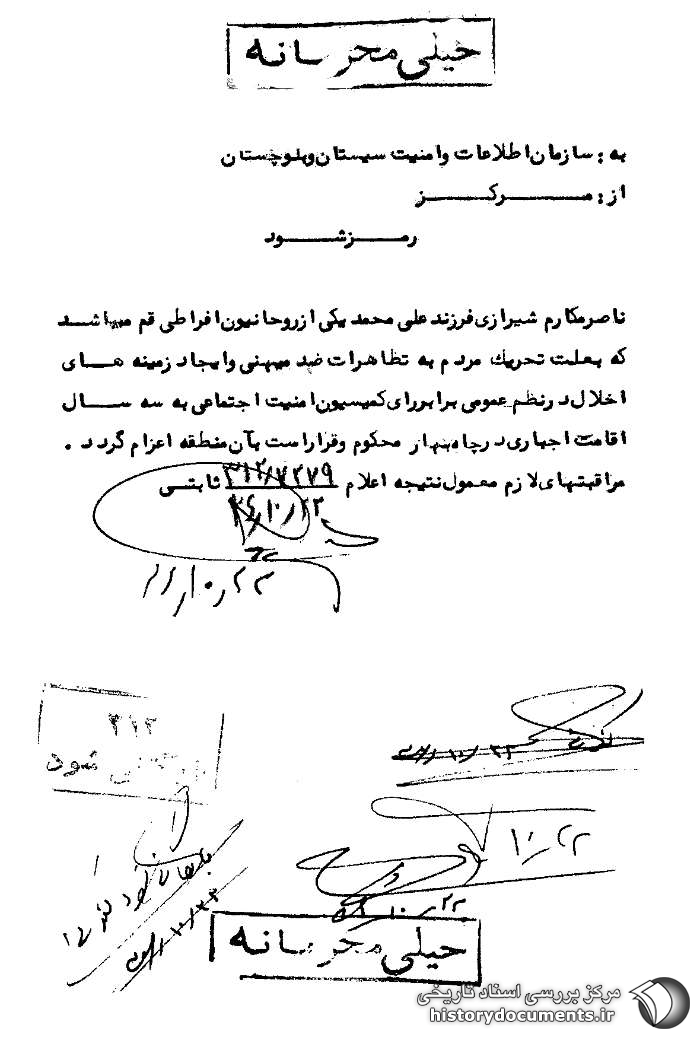 خیلی محرمانه
به : سازمان اطلاعات وامنیت سیستان وبلوچستان
از : مرکز
رمز شود
ناصر مکارم شیرازی فرزند علی محمد یکی از روحانیون افراطی قم میباشد
که بعلت تحریك مردم به تظاهرات ضد میهنی وایجاد زمینه های
اخلال در نظم عمومی برابر رای کمیسیون امنیت اجتماعی به سه سال
اقامت اجباری در چاه بهار محکوم وقرار است بآن منطقه اعزام گردد .
مراقبتهای لازم معمول نتیجه اعلام ۳۱۲/۷۲۷۹ ثابتی
۱۰/۲۳
۱۰/۲۲
۳۱۲
شود
۱۰/۲۲
۱۰/۲۲
خیلی محرمانه
مرکز بررسی اسناد تاریخی
historydocuments.ir